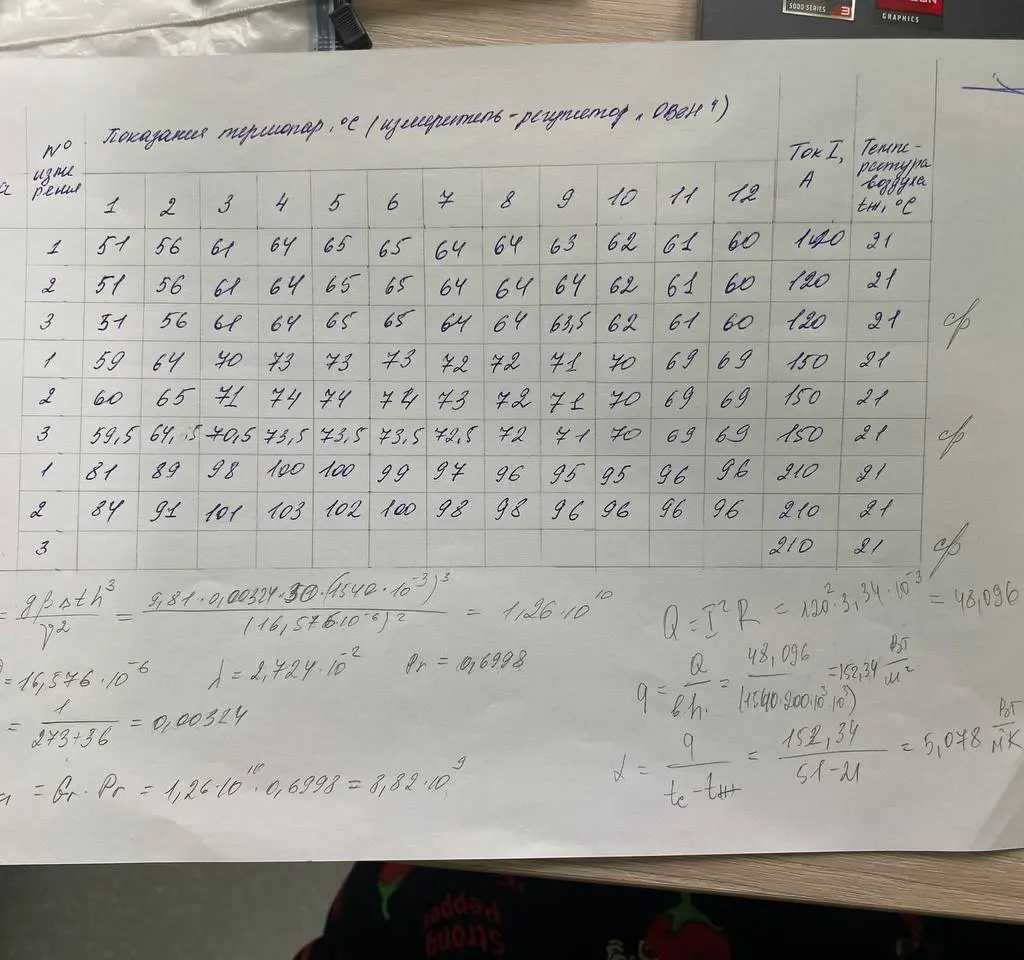 5000 SERIES 3
GRAPHICS
№ измерения
Показания термопар, °C (измеритель-регулятор „ОВЕН")
Ток I, А
Температура воздуха tж, °C
а
1 2 3 4 5 6 7 8 9 10 11 12
1 51 56 61 64 65 65 64 64 63 62 61 60 120 21
2 51 56 61 64 65 65 64 64 64 62 61 60 120 21
3 51 56 61 64 65 65 64 64 63,5 62 61 60 120 21 ср
1 59 64 70 73 73 73 72 72 71 70 69 69 150 21
2 60 65 71 74 74 74 73 72 71 70 69 69 150 21
3 59,5 64,5 70,5 73,5 73,5 73,5 72,5 72 71 70 69 69 150 21 ср
1 81 89 98 100 100 99 97 96 95 95 96 96 210 21
2 84 91 101 103 102 100 98 98 96 96 96 96 210 21
3 210 21 ср
= gβΔth³ / ν² = 9,81·0,00324·30·(1540·10⁻³)³ / (16,576·10⁻⁶)² = 1,26·10¹⁰
Q = I²R = 120²·3,34·10⁻³ = 48,096
=16,576·10⁻⁶ λ=2,724·10⁻² Pr=0,6998
q = Q / bh = 48,096 / (1540·200·10⁻³·10⁻³) = 152,34 Вт/м²
= 1 / 273+36 = 0,00324
α = q / tc - tж = 152,34 / 51-21 = 5,078 Вт/м²К
= Gr·Pr = 1,26·10¹⁰·0,6998 = 8,82·10⁹
Strong
Pepper